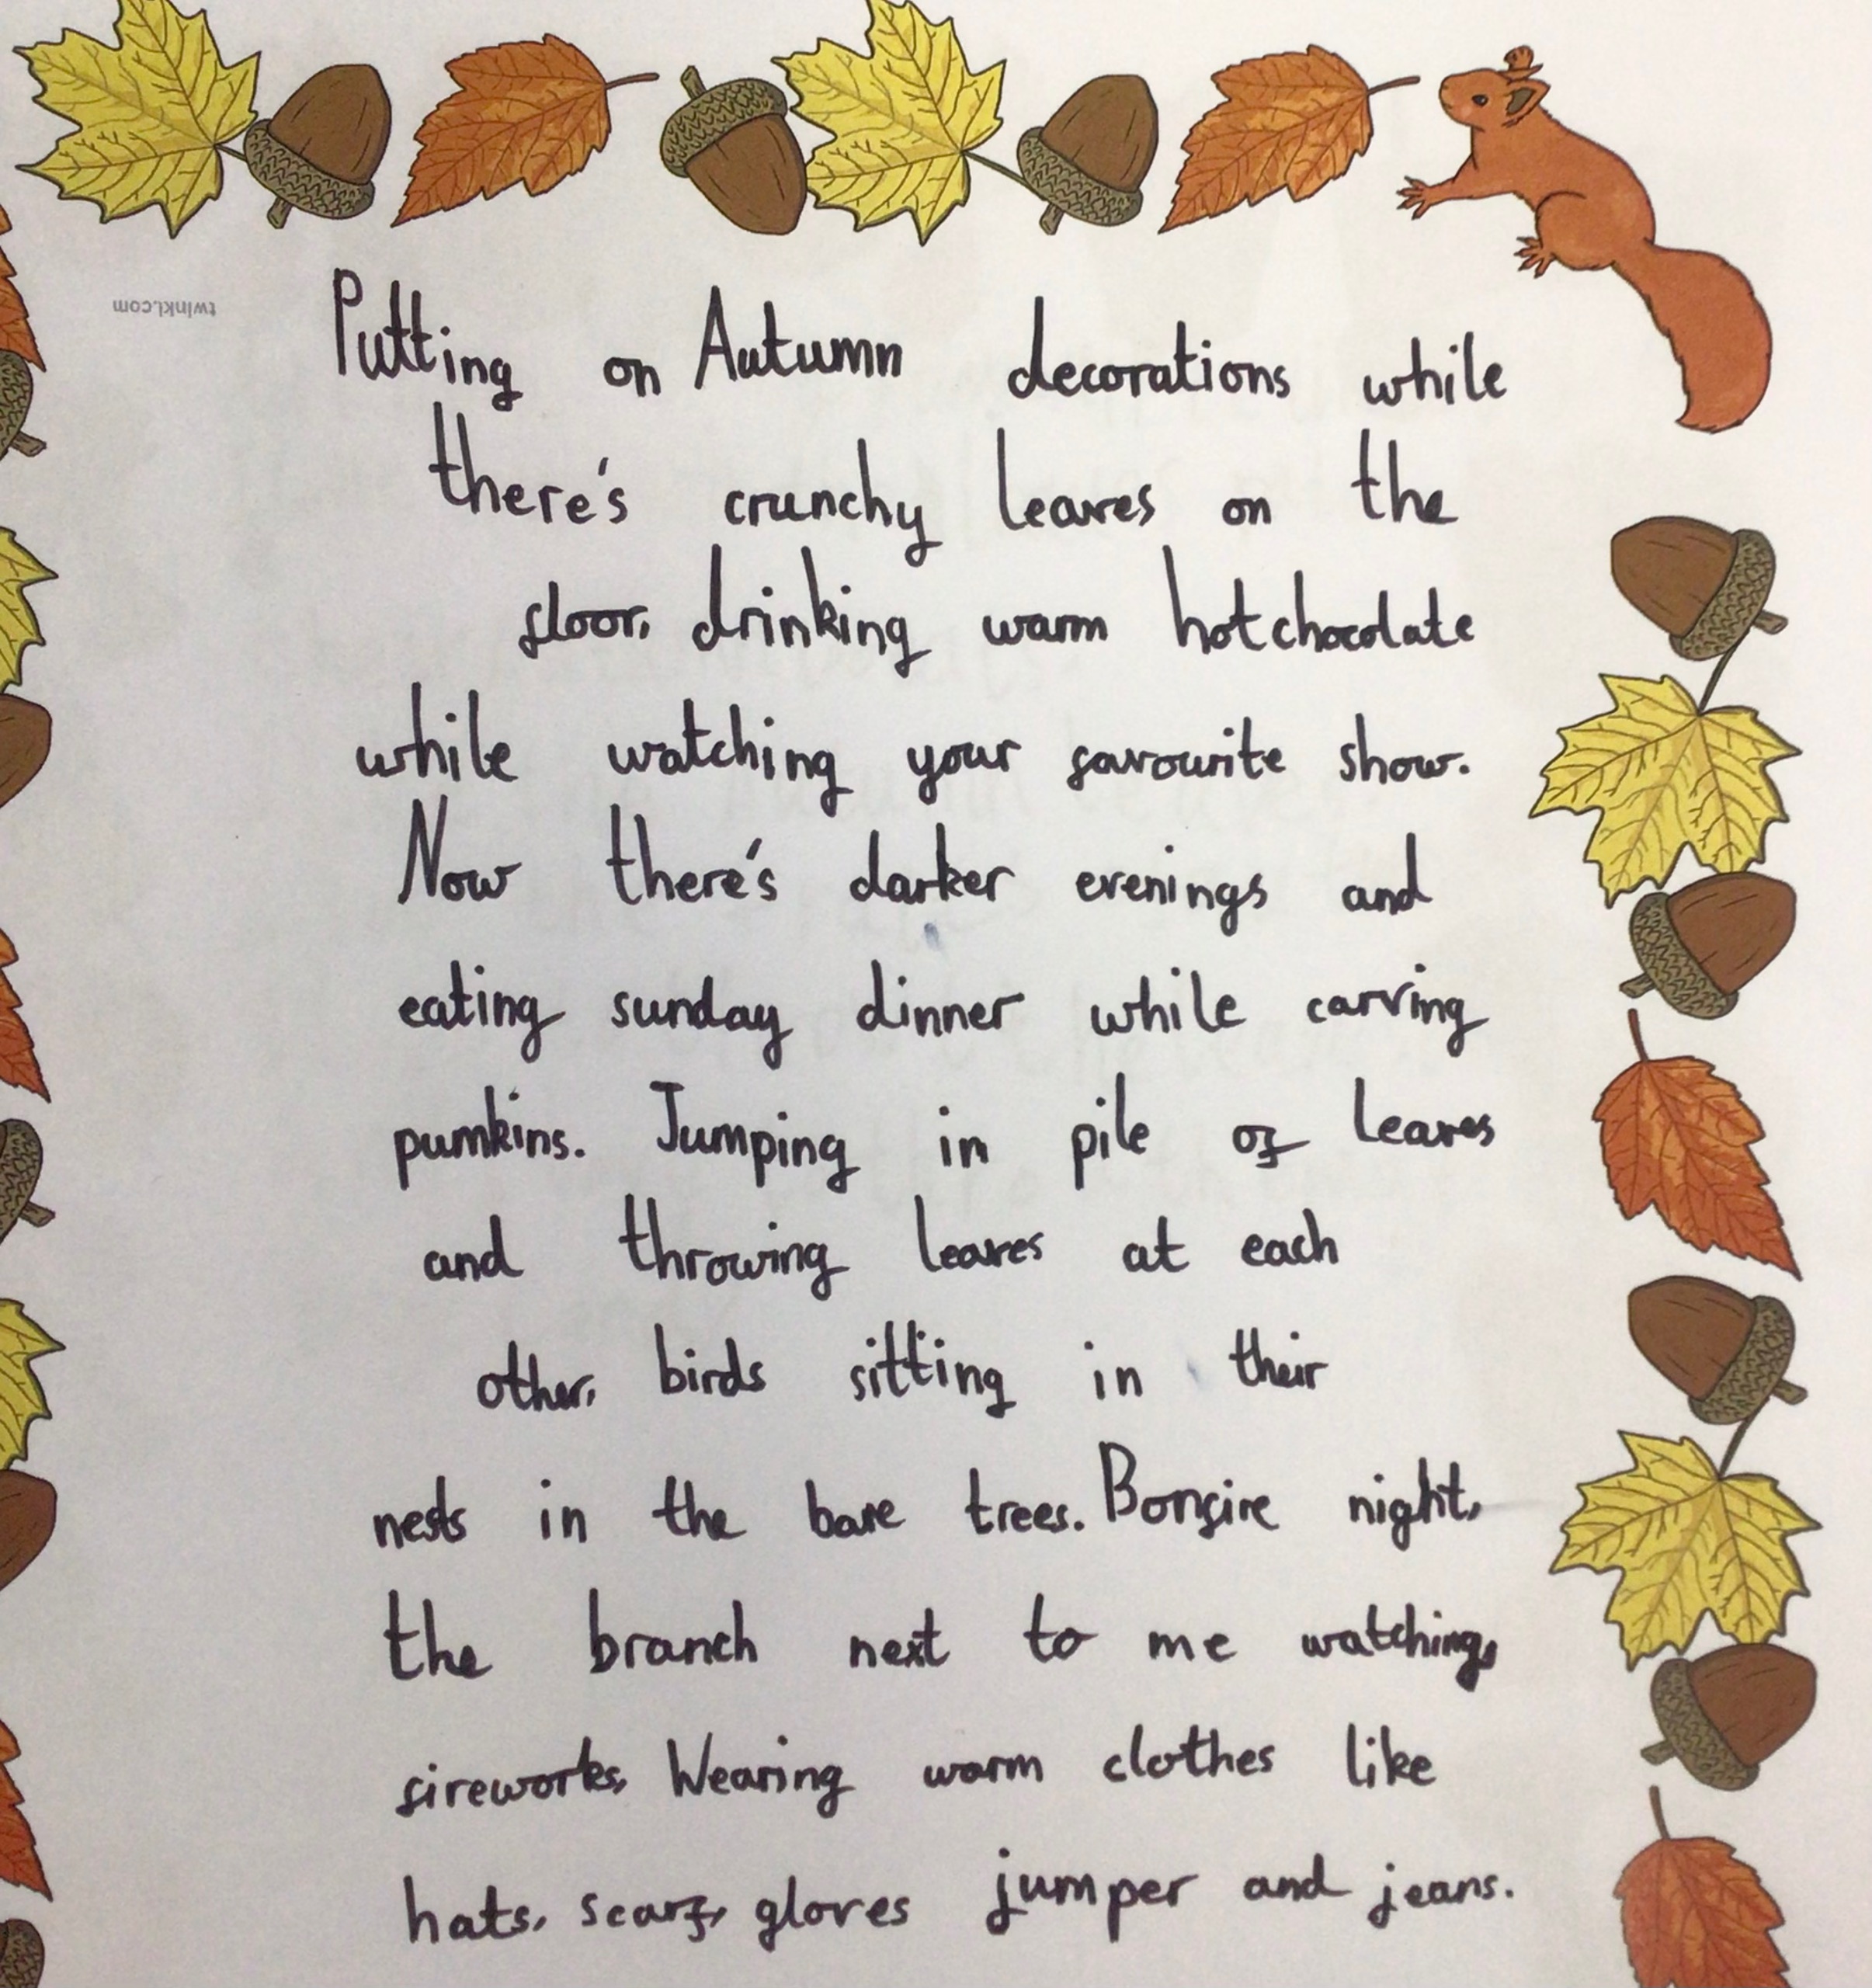 twinkl.com
Putting on Autumn decorations while
there's crunchy leaves on the
floor, drinking warm hotchocolate
while watching your favourite show.
Now there's darker evenings and
eating sunday dinner while carving
pumkins. Jumping in pile of leaves
and throwing leaves at each
other, birds sitting in their
nests in the bare trees. Bonfire night,
the branch next to me watching,
fireworks, Wearing warm clothes like
hats, scarf, gloves jumper and jeans.